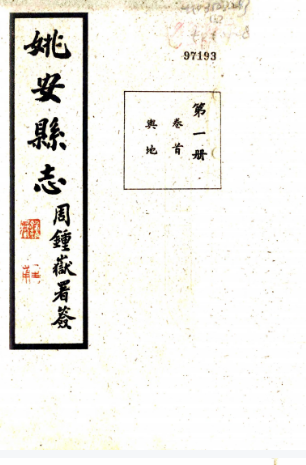 姚安縣志
周鍾嶽署簽
97193
第一册
卷首
輿地